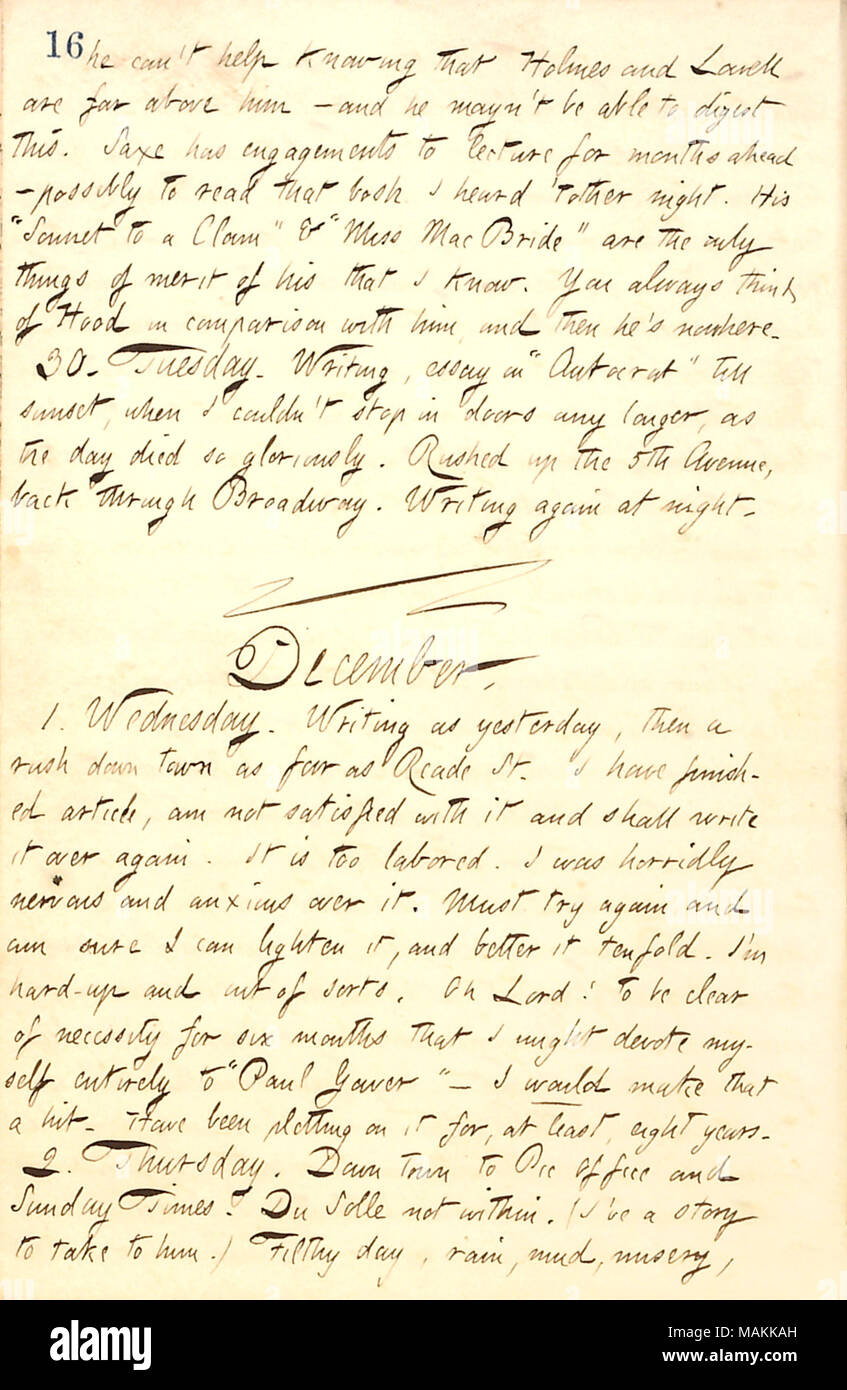 16
he can't help knowing that Holmes and Lowell
are far above him — and he mayn't be able to digest
this. Saxe has engagements to lecture for months ahead
— possibly to read that bosh I heard 'tother night. His
"Sonnet to a Clam" & "Miss Mac Bride" are the only
things of merit of his that I know. You always think
of Hood in comparison with him, and then he's nowhere.
30. Tuesday. Writing, essay on "Autocrat" till
sunset, when I couldn't stop in doors any longer, as
the day died so gloriously. Rushed up the 5th Avenue,
back through Broadway. Writing again at night.
December.
1. Wednesday. Writing as yesterday, then a
rush down town as far as Reade St. I have finish-
ed article, am not satisfied with it and shall write
it over again. It is too labored. I was horridly
nervous and anxious over it. Must try again and
am sure I can lighten it, and better it tenfold. I'm
hard-up and out of sorts. Oh Lord! to be clear
of necessity for six months that I might devote my-
self entirely to "Paul Gower" — I would make that
a hit. Have been plotting on it for, at least, eight years.
2. Thursday. Down town to Pic Office and
Sunday Times. Du Solle not within. (I've a story
to take to him.) Filthy day, rain, mud, misery,
alamy
Image ID: MAKKAH
www.alamy.com